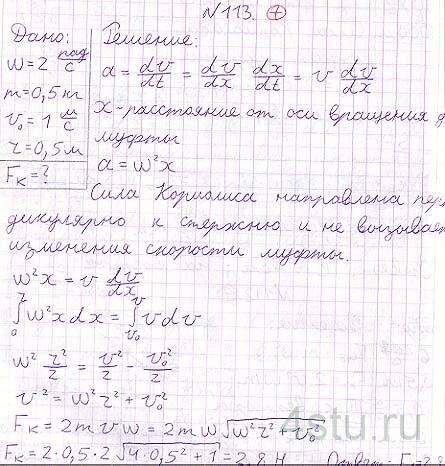 N 113. +
Дано:
ω = 2 рад/с
m = 0,5 кг
v₀ = 1 м/с
r = 0,5 м
Fк = ?
Решение:
a = dv/dt = dv/dx dx/dt = v dv/dx
x - расстояние от оси вращения
муфты
a = ω²x
Сила Кориолиса направлена
дикулярно к стержню и не вызывает
изменения скорости муфты.
ω²x = v dv/dx
∫₀ʳ ω²x dx = ∫ᵥ₀ᵛ v dv
ω² r²/2 = v²/2 - v₀²/2
v² = ω²r² + v₀²
Fк = 2mvω = 2mω√(ω²r² + v₀²)
Fк = 2·0,5·2 √(4·0,5² + 1) = 2,8 Н
4stu.ru